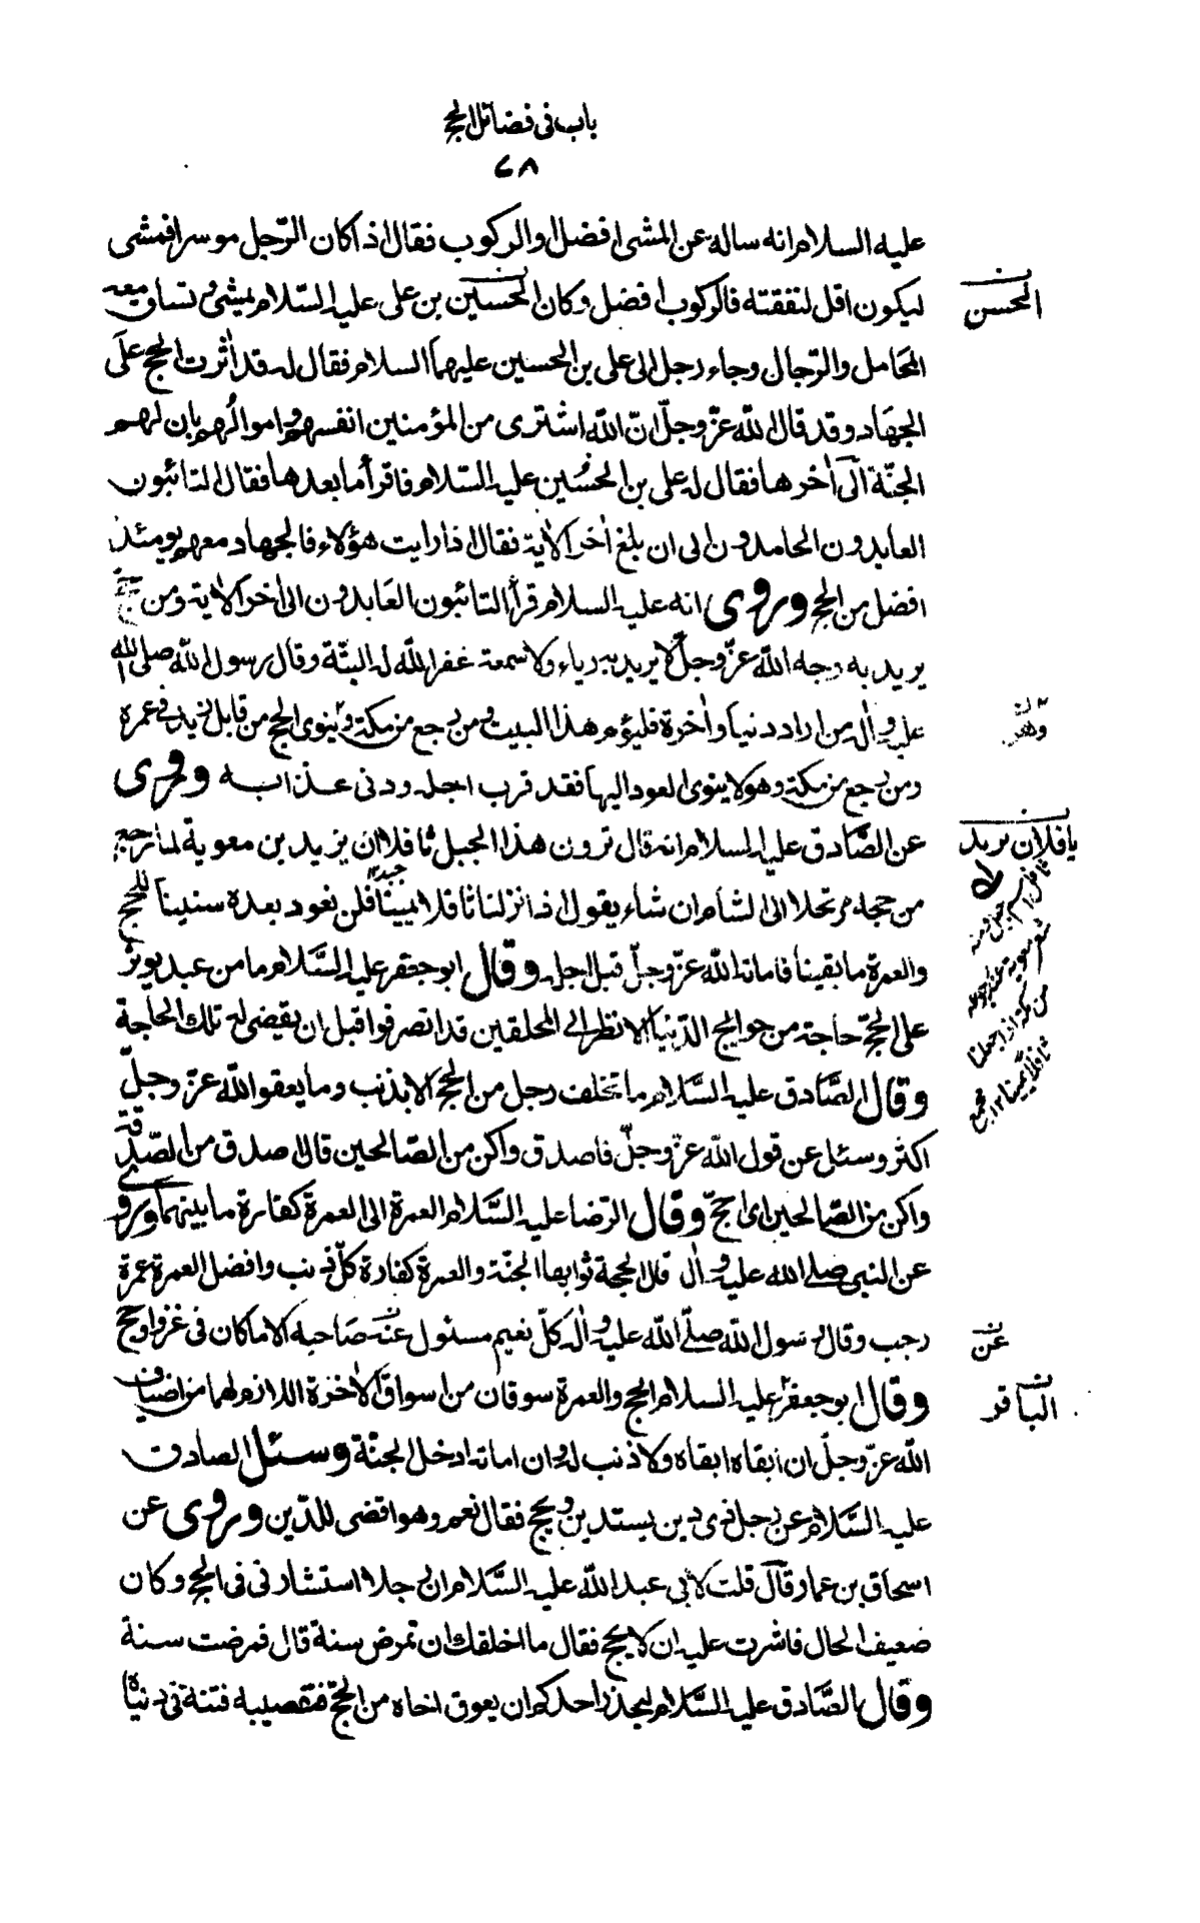 باب في فضائل الحج
٦٨
عليه السلام انه ساله عن المشى افضل او الركوب فقال اذا كان الرّجل موسرا فمشى
ليكون اقل لنفقته فالركوب افضل وكان الحسين بن على عليه السّلام يمشى وتساق معه
المحَامل والرّحال وجاء رجل الى على بن الحسين عليهما السلام فقال له قد اٰثرت الحج علَى
الجهَاد وقد قال اللّه عزّ وجلّ انّ اللّه اشترى من المؤمنين انفسهم واموالهم بان لهم
الجنّة الٓى اٰخرها فقال له على بن الحُسَين عليه السّلام فاقرأ ما بعدها فقال التائبون
العابدون الحامدون الى ان بلغ اٰخر الاٰية فقال اذا رايت هؤلاء فالجهاد معهم يومئذ
افضل من الحج وروى انه عليه السلام قرأ التائبون العَابدون الى اٰخر الاٰية ومن حجّ
يريد به وجه اللّه عزّ وجلّ لا يريد به رياء ولا سمعة غفر اللّه له البتّة وقال رسول اللّه صلى اللّه
عليه واٰله من اراد دنيا واٰخرة فليؤم هذا البيت ومن رجع من مكة وينوى الحج من قابل زيد فى عمره
ومن رجع من مكة وهو لا ينوى العود اليها فقد قرب اجله ودنى عذابه وروى
عن الصَّادق عليه السلام انه قال ترون هذا الجبل ثافلا ان يزيد بن معوية لما رجع
من حجه مرتحلا الى الشام ان شاء يقول اذا نزلنا ثافلا يمينا فلن نعود بعده سنينا للحج
والعمرة ما بقينا فاماته اللّه عزّ وجلّ قبل اجله وقال ابو جعفر عليه السَّلام ما من عبد يؤثر
على الحجّ حاجة من حوايج الدّنيا الا نظر الى المحلقين قد انصرفوا قبل ان يقضى له تلك الحاجة
وقال الصَّادق عليه السَّلام ما تخلف رجل من الحج الا بذنب وما يعفو اللّه عزّ وجلّ
اكثر وسئل عن قول اللّه عزّ وجلّ فاصدق واكن من الصّالحين قال اصدق من الصّدقة
واكن من الصّالحين اى احجّ وقال الرّضا عليه السَّلام العمرة الى العمرة كفارة ما بينهما وروى
عن النبى صلى اللّه عليه واٰله قال الحجة ثوابها الجنّة والعمرة كفارة كلّ ذنب وافضل العمرة عمرة
رجب وقال رسول اللّه صلّى اللّه عليه واٰله كلّ نعيم مسئول عنه صَاحبه الا ما كان فى غزو او حج
وقال ابو جعفر عليه السلام الحج والعمرة سوقان من اسواق الاٰخرة اللازم لهما من اضياف
اللّه عزّ وجلّ ان ابقاه ابقاه ولا ذنب له وان اماته ادخل الجنّة وسئل الصادق
عليه السَّلام عن رجل ذى دين يستدين ويحج فقال نعم وهو اقضى للدّين وروى عن
اسحاق بن عمار قآل قلت لابى عبد اللّه عليه السَّلام ان رجلا استشارنى فى الحج وكان
ضعيف الحال فاشرت عليه ان لا يحج فقال ما اخلقك ان تمرض سنة قال فمرضت سنة
وقال الصَّادق عليه السَّلام ليحذر احدكم ان يعوق اخاه من الحجّ فتصيبه فتنة فى دنياه
الحسن
يا فلان يريد
عن
الباقر